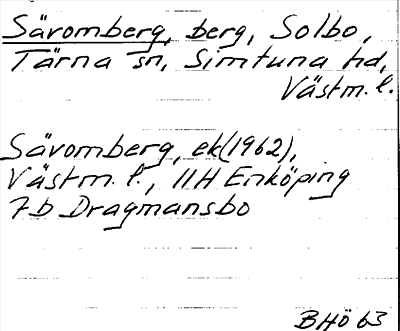 Säromberg, berg, Solbo,
Tärna sn, Simtuna hd,
Västm. l.
Sävomberg, ek(1962),
Västm. l., 11H Enköping
7b Dragmansbo
BHö 63